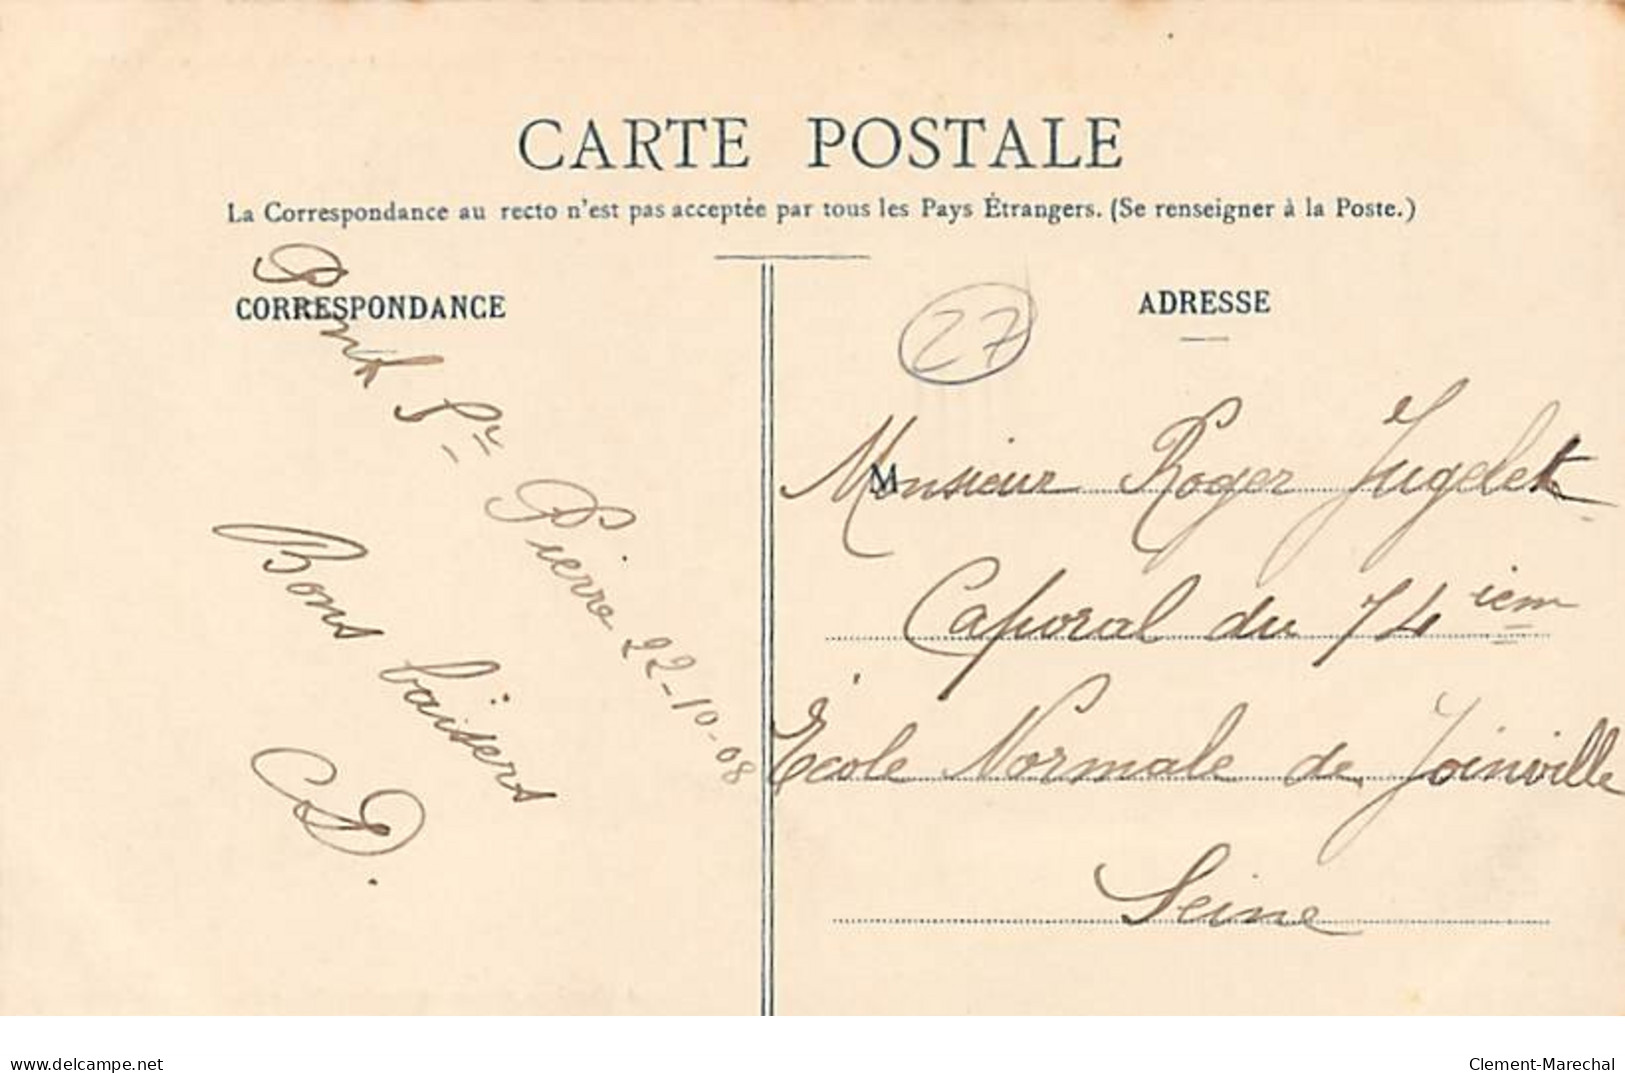 CARTE POSTALE
La Correspondance au recto n'est pas acceptée par tous les Pays Étrangers. (Se renseigner à la Poste.)
CORRESPONDANCE
Pont St Pierre 22-10-08
Bons baisers
CD.
ADRESSE
27
M
Monsieur Roger Jugelet
Caporal du 74 ièm
École Normale de Joinville
Seine
delcampe.net
Clement-Marechal